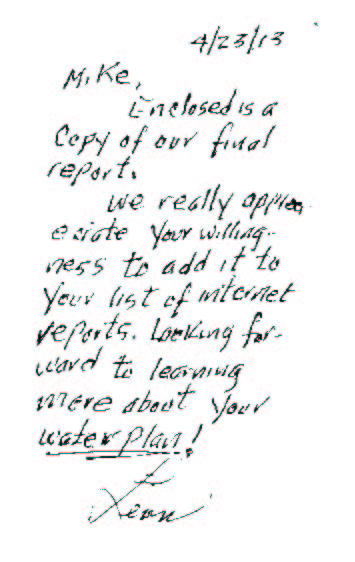 4/23/13
Mike,
Enclosed is a
Copy of our final
report.
We really appre
eciate your willing-
ness to add it to
your list of internet
reports. Looking for-
ward to learning
more about your
water plan!